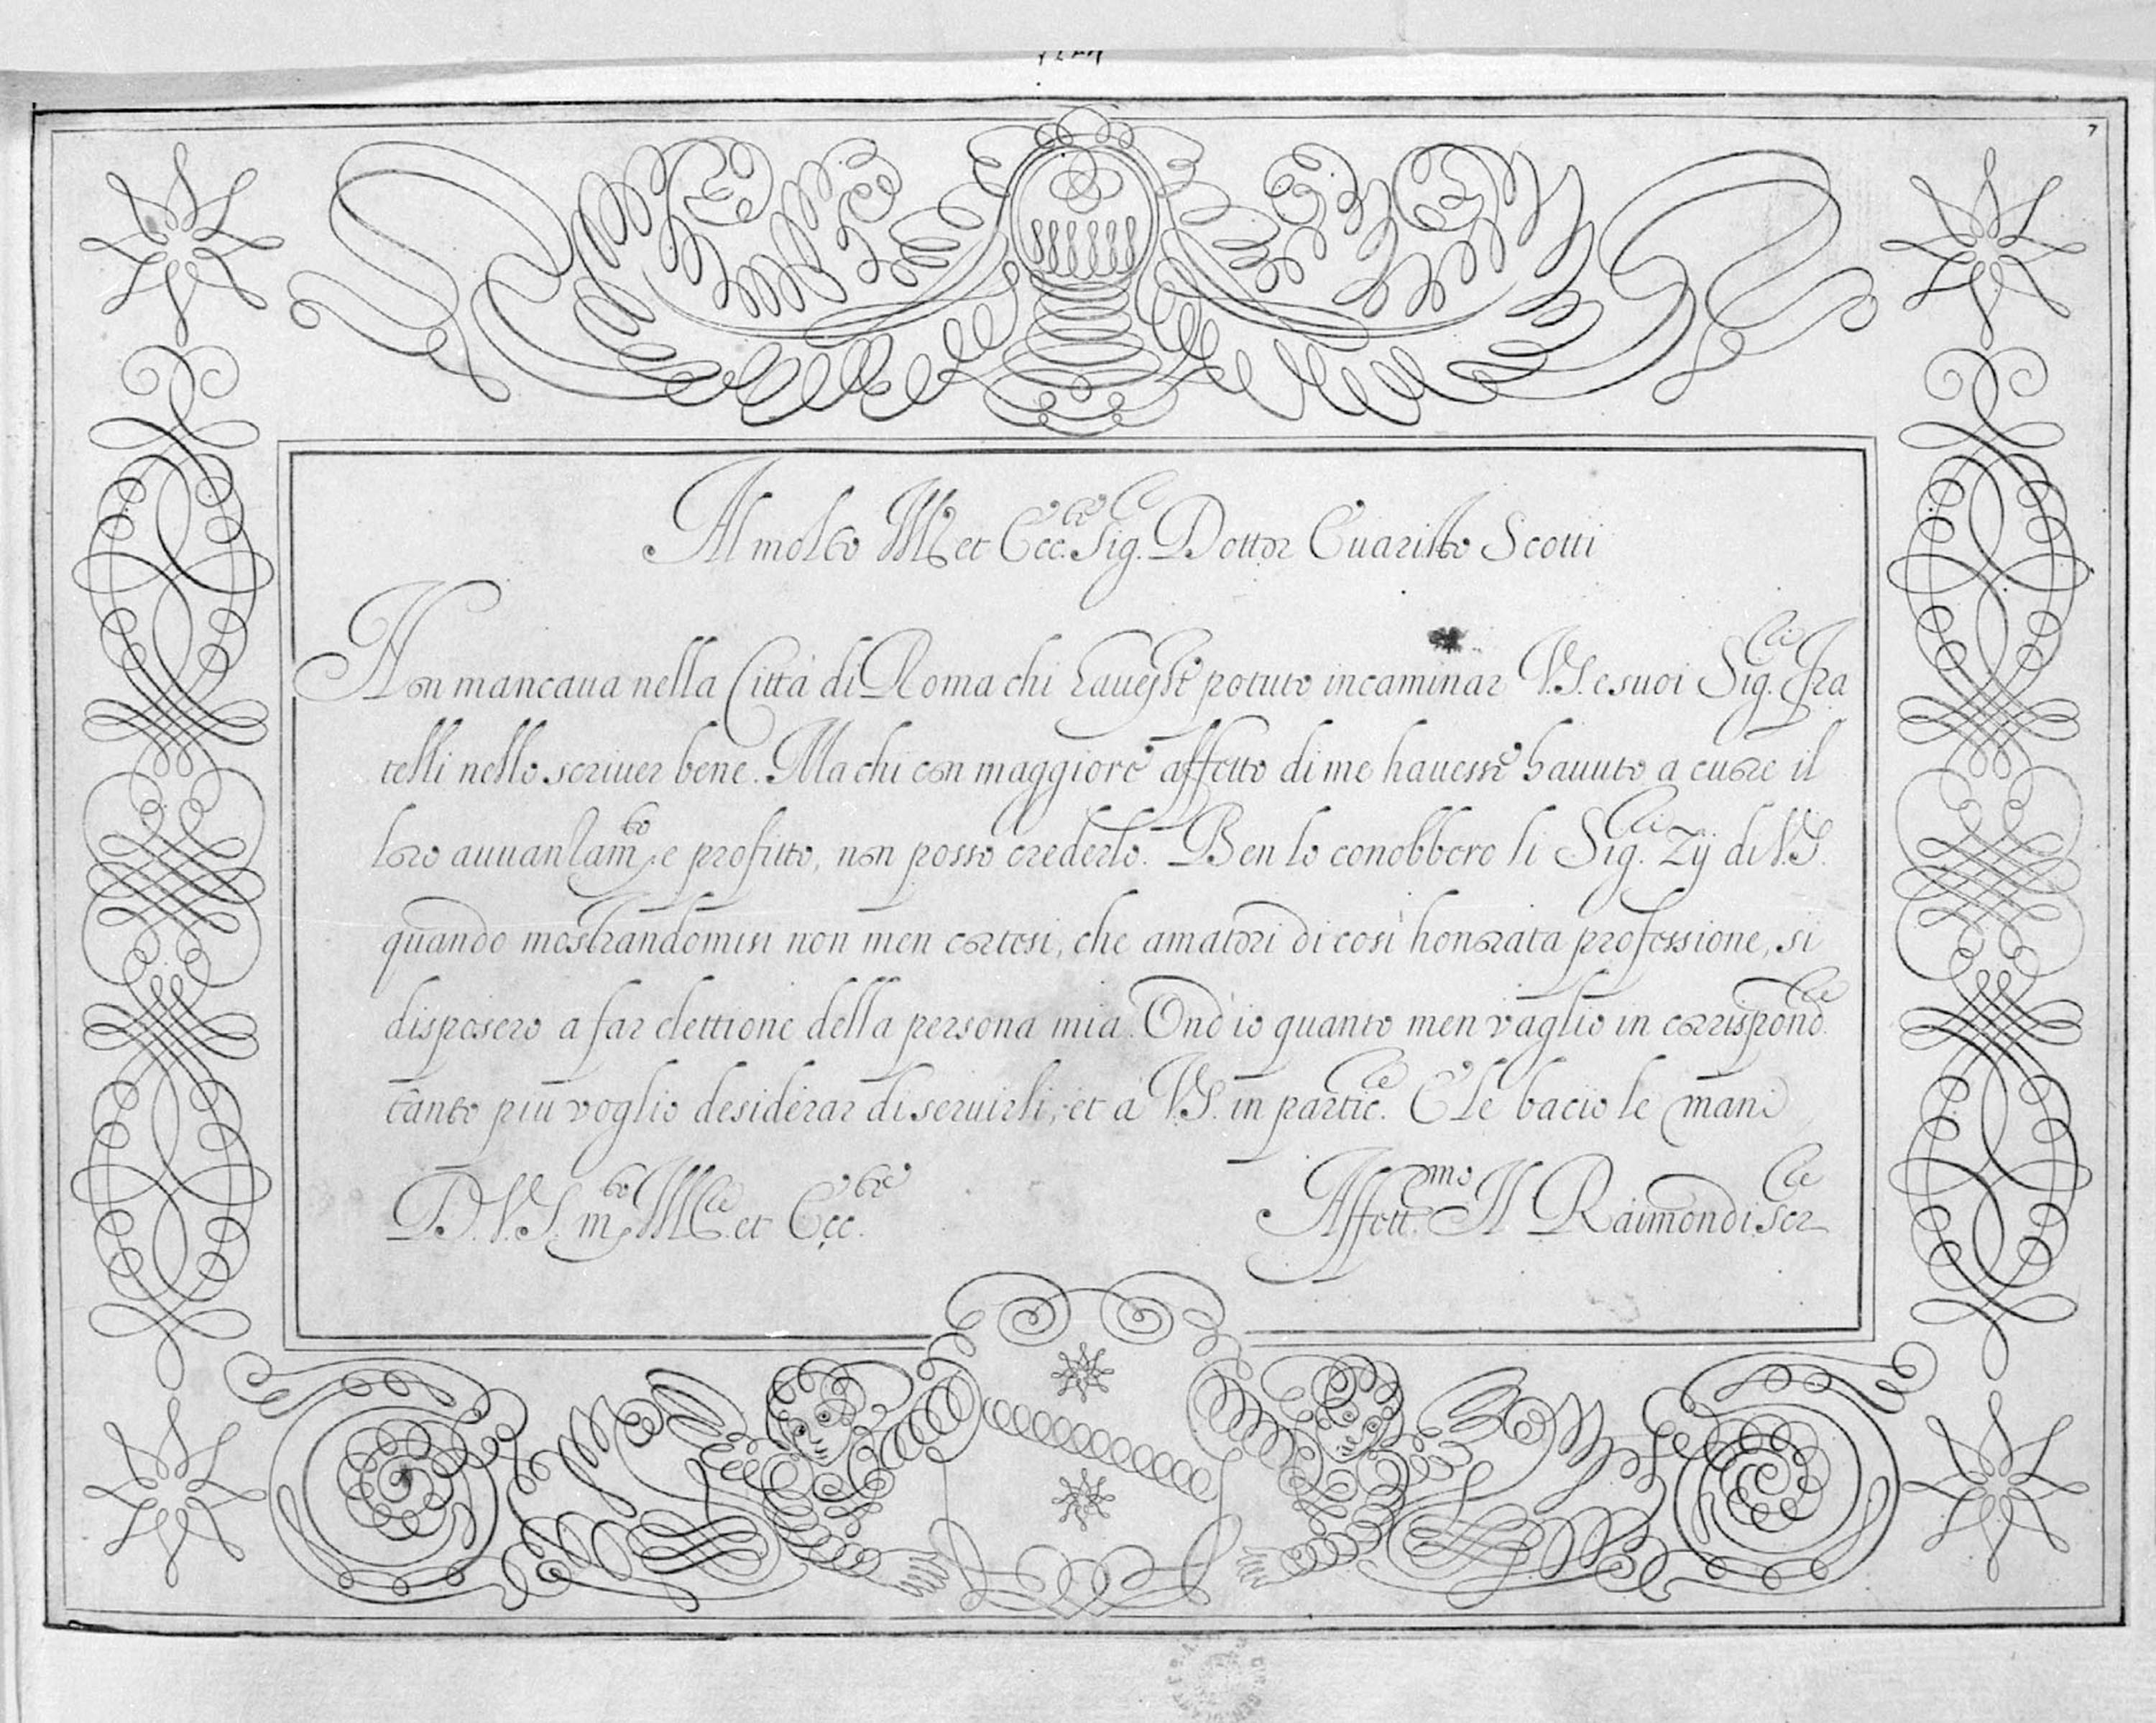 7
Al molto M. et Ecc.te Sig. Dottor Euaristo Scotti
Non mancaua nella Città di Roma chi hauesse potuto incaminar V.S. e suoi Sig.ri Fra
telli nello scriuer bene. Ma chi con maggiore affetto di me hauesse hauuto a cuore il
loro auuanzam.to e profitto, non posso crederlo. Ben lo conobbero li Sig.ri Zij di V.S.
quando mostrandomisi non men cortesi, che amatori di così honorata professione, si
disposero a far elettione della persona mia. Ond'io quanto men vaglio in corrispond.
tanto più voglio desiderar di seruirli, et à V.S. in partic.re E le bacio le mani
D.V.S. m.to M. et Ecc.te
Affett.mo Il Raimondi Ser.re